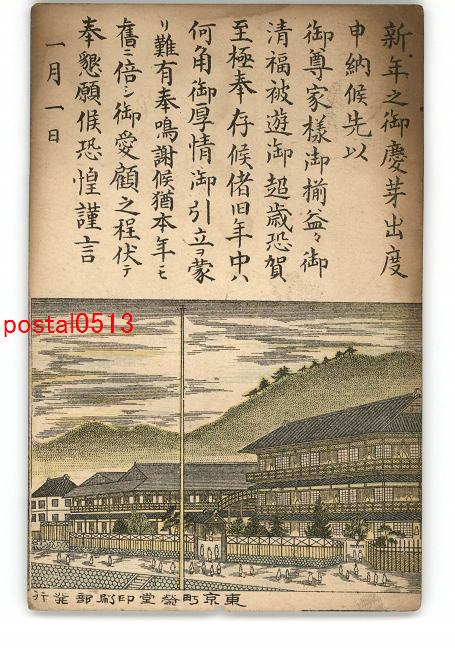 新年之御慶芽出度
申納候先以
御尊家様御揃益々御
清福被遊御超歳恐賀
至極奉存候偖旧年中ハ
何角御厚情御引立ヲ蒙
リ難有奉鳴謝候猶本年モ
舊ニ倍シ御愛顧之程伏テ
奉懇願候恐惶謹言
一月一日
postal0513
行発部刷印堂
町京東